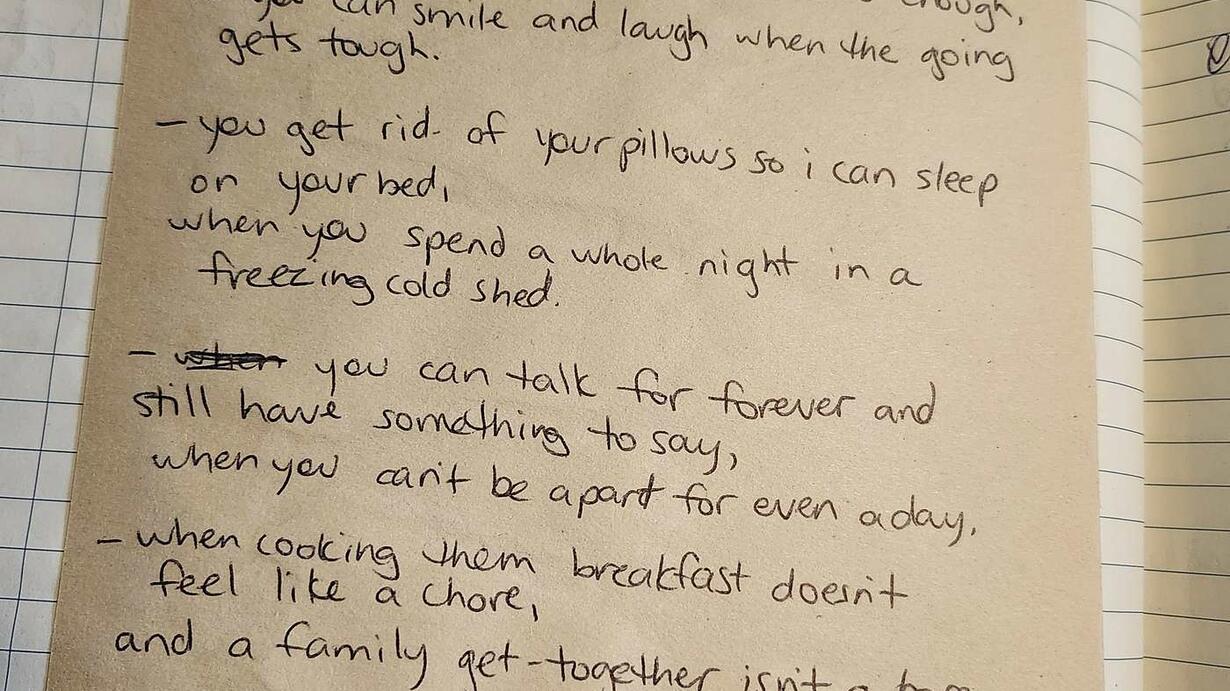 you can smile and laugh when the going
gets tough.
- you get rid of your pillows so i can sleep
on your bed,
when you spend a whole night in a
freezing cold shed.
- you can talk for forever and
still have something to say,
when you can't be apart for even a day.
- when cooking them breakfast doesn't
feel like a chore,
and a family get-together isn't a